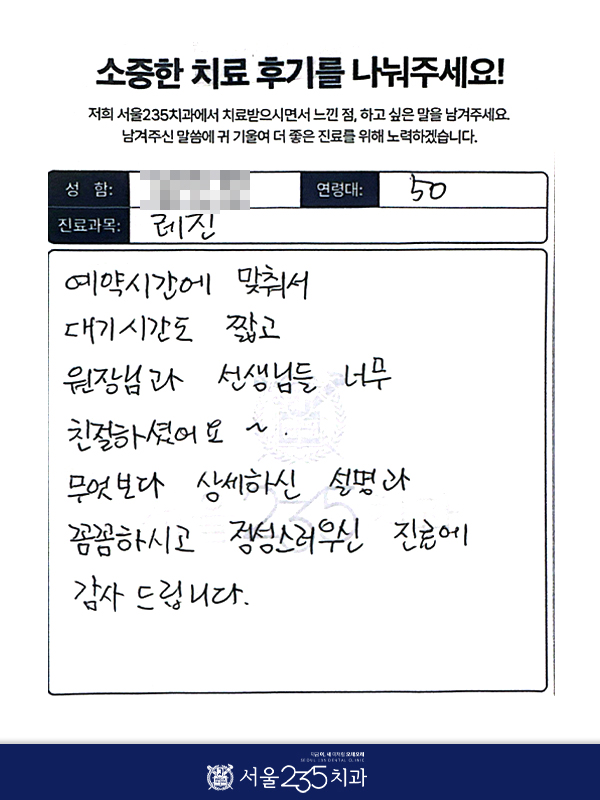 소중한 치료 후기를 나눠주세요!
저희 서울235치과에서 치료받으시면서 느낀 점, 하고 싶은 말을 남겨주세요.
남겨주신 말씀에 귀 기울여 더 좋은 진료를 위해 노력하겠습니다.
성 함: 연령대: 50
진료과목: 레진
예약시간에 맞춰서
대기시간도 짧고
원장님과 선생님들 너무
친절하셨어요 ~.
무엇보다 상세하신 설명과
꼼꼼하시고 정성스러우신 진료에
감사 드립니다.
235
서울235치과